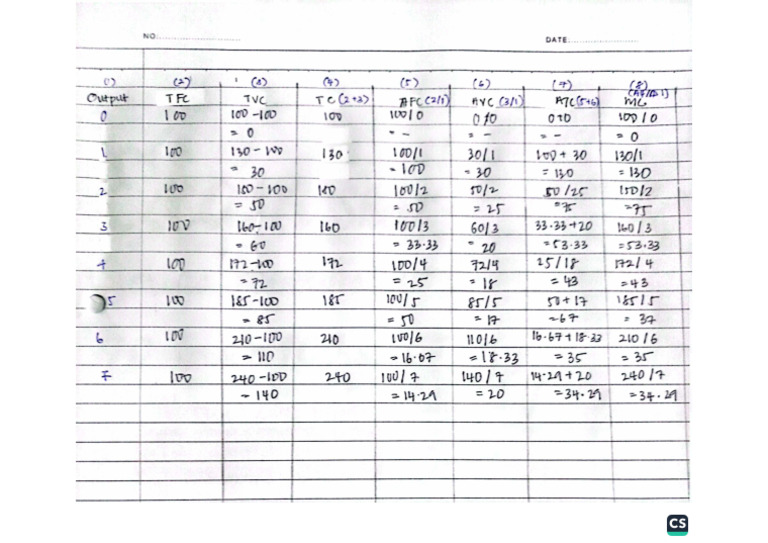 NO: DATE:
(1) (2) (3) (4) (5) (6) (7) (8)
Output TFC TVC TC (2+3) AFC (2/1) AVC (3/1) ATC (5+6) MC
0 100 100-100 100 100/0 0/0 0+0 100/0
= 0 = - = - = - = 0
1 100 130-100 130 100/1 30/1 100+30 130/1
= 30 = 100 = 30 = 130 = 130
2 100 100-100 100/2 50/2 50/25 150/2
= 50 = 50 = 25 = 75 = 75
3 100 160-100 160 100/3 60/3 33.33+20 160/3
= 60 = 33.33 = 20 = 53.33 = 53.33
4 100 172-100 172 100/4 72/4 25/18 172/4
= 72 = 25 = 18 = 43 = 43
5 100 185-100 185 100/5 85/5 50+17 185/5
= 85 = 50 = 17 = 67 = 37
6 100 210-100 210 100/6 110/6 16.67+18.33 210/6
= 110 = 16.67 = 18.33 = 35 = 35
7 100 240-100 240 100/7 140/7 14.29+20 240/7
= 140 = 14.29 = 20 = 34.29 = 34.29
CS